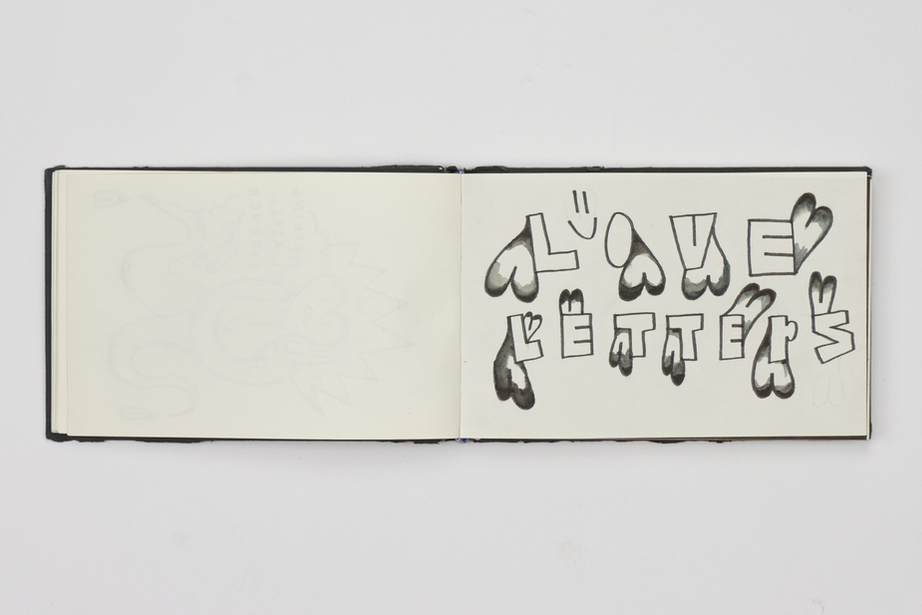 LOVE
LETTERS